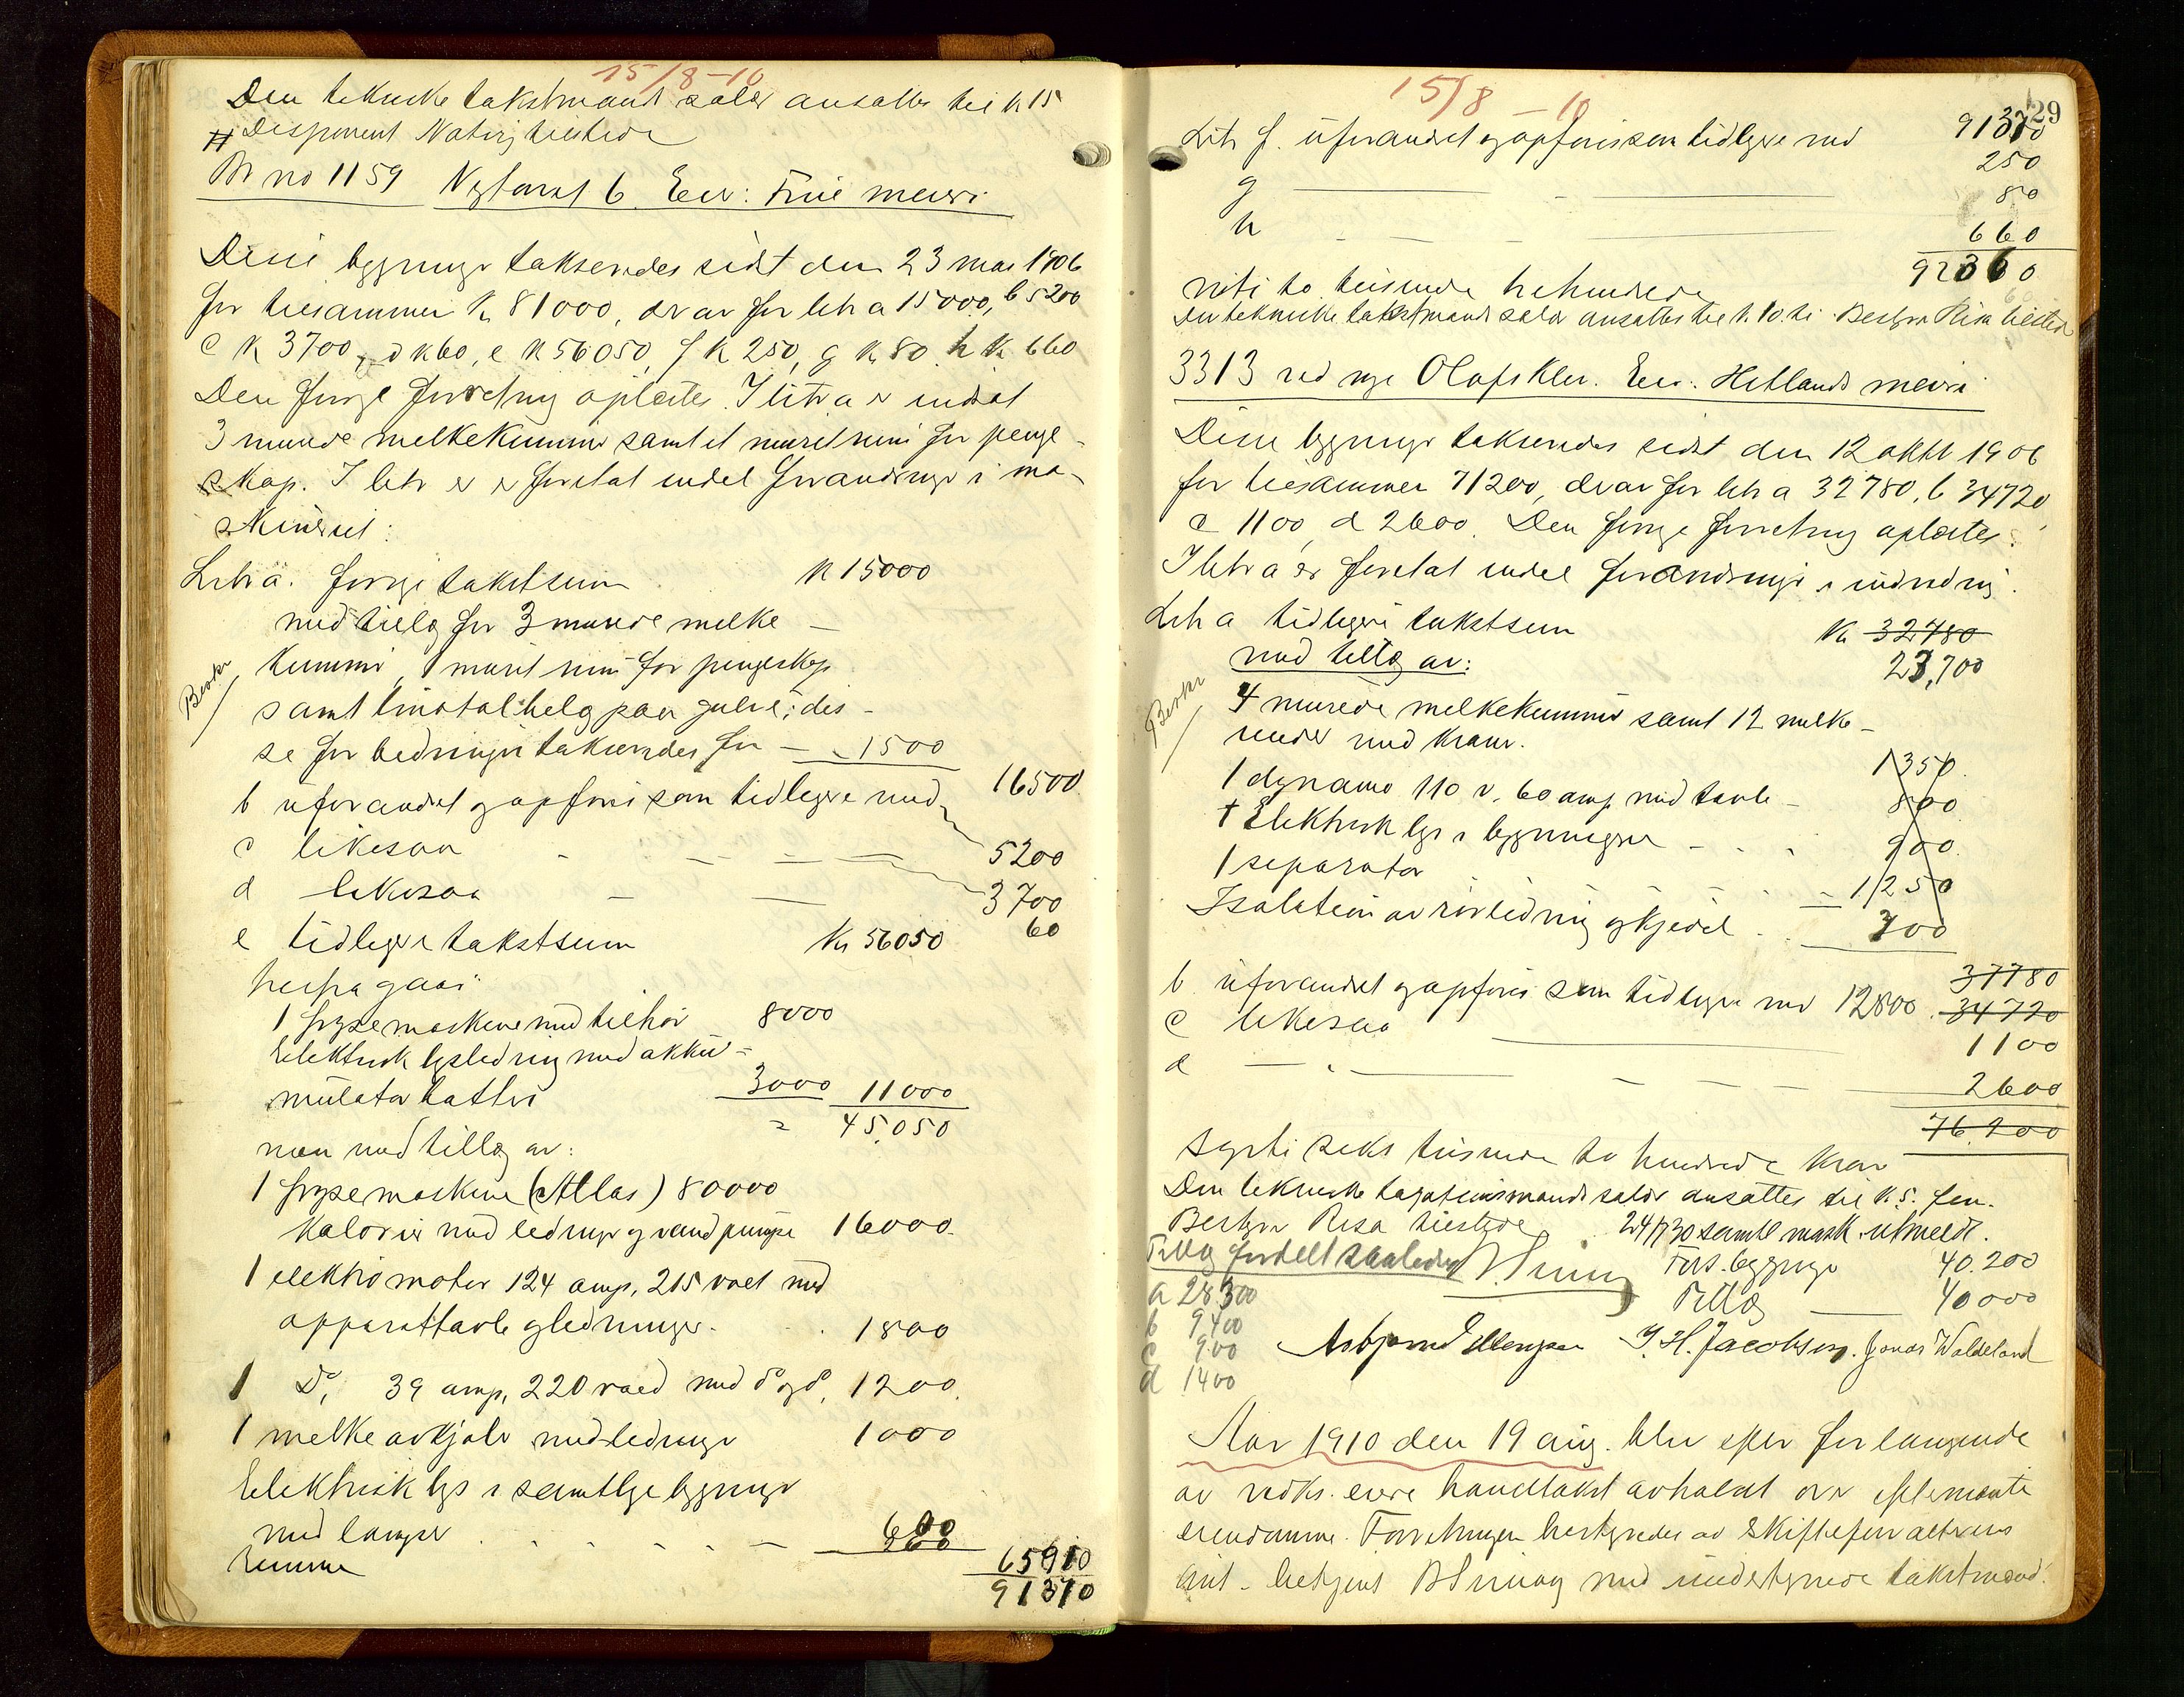 15/8-10
Den tekniske takstmands salær ansattes til k 15
# Disponent Natvig tilstede
Br no 1159 Nytorvet 6. Eier: Frue meieri
Disse bygninger takseredes sidst den 23 mai 1906
for tilsammen K 81000, derav for litr a 15000, b 5200
c K 3700, d K 60, e K 56050, f K 250, g K 80 h K 660
Den forrige forretning oplæstes. I litr a er indsat
3 murede melkekummer samt et muret rum for penge-
skap. I litr e er foretat endel forandringer i ma-
skineriet:
Litr a. forrige takstsum K 15000
med tillæg for 3 murede melke-
kummer, 1 muret rum for pengeskap
Beskr
samt belæg paa gulvet; dis-
se forbedringer takseredes for - 1500
16500
b uforandret og opføres som tidligere med
5200
c likesaa - - - -
3700
d likesaa - -
60
e tidligere takstsum Kr 56050
herfra gaar:
1 frysemaskine med tilhør 8000
Elektrisk lysledning med akku-
mulator batteri 3000 11000
= 45,050
men med tillæg av:
1 frysemaskine (Atlas) 80000
kalorier med ledninger og vandpumpe 16000.
1 elektromotor 124 amp, 215 volt med
apparattavle og ledninger. 1800
1 Do, 39 amp, 220 volt med do og do, 1200.
1 melkeavkjøler med ledninger 1000
Elektrisk lys i samtlige bygninger
med lamper . - - - -
65910
Summa 91370
15/8-10
29
91370
Litr f. uforandret og opføres som tidligere med 250
g 80
h 660
92360
nitito tusinde trehundrede
Den tekniske takstmands salær ansattes til k. 10. Bestyrer Risa tilstede
3313 ved nye Olafskleven. Eier: Hetlands meieri
Disse bygninger takseredes sidst den 12 oktbr 1906
for tilsammen 71200, derav for litr a 32780, b 34720
c 1100, d 2600. Den forrige forretning oplæstes.
I litr a er foretat endel forandringer i indredning.
Litr a tidligere takstsum Kr 32780
med tillæg av: 23,700
Beskr
4 murede melkekummer samt 12 melke-
med kraner. 1350.
1 dynamo 110 v. 60 amp med tavle - 800
+ Elektrisk lys i bygningene - 900.
1 separator - 1250
Isolation av rørledning og kjedel 700
37780
b uforandret og opføres som tidligere med 12800. 34720
c likesaa 1100
d 2600
76.200
sytti seks tusinde to hundrede kroner
Den tekniske takstmands salær ansattes til k. 5. fem.
Bestyrer Risa tilstede. 24/7 30 samtl mask. utmeldt.
Tillæg fordelt saaledes Fors. bygninger 40.200
a 28300 Tillæg 40000
b 9400
c 900 Asbjørn Ellingsen J. H. Jacobsen. Jonas Waldeland
d 1400
Aar 1910 den 19 aug. blev efter forlangende
av vedk. eiere branntakst avholdt over efternævnte
eiendomme. Forretningen bestyredes av skifteforvalterens
aut. betjent med undertegnede takstmænd.